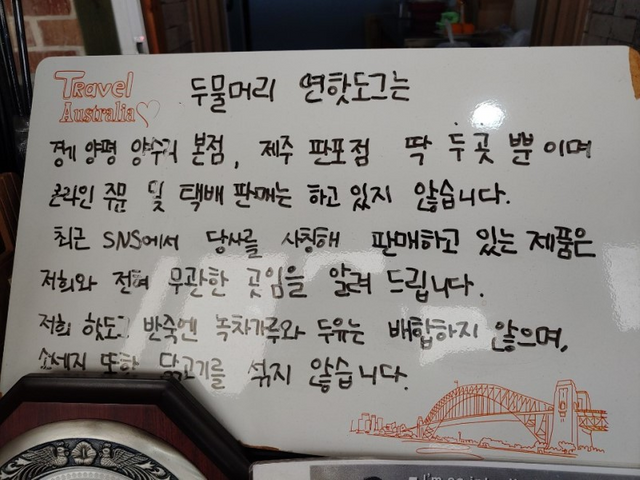 Travel
Australia
두물머리 연핫도그는
경기 양평 양수리 본점, 제주 판포점 딱 두곳 뿐이며
온라인 주문 및 택배 판매는 하고 있지 않습니다.
최근 SNS에서 당사를 사칭해 판매하고 있는 제품은
저희와 전혀 무관한 곳임을 알려 드립니다.
저희 핫도그 반죽엔 녹차가루와 두유는 배합하지 않으며,
소세지 또한 닭고기를 섞지 않습니다.